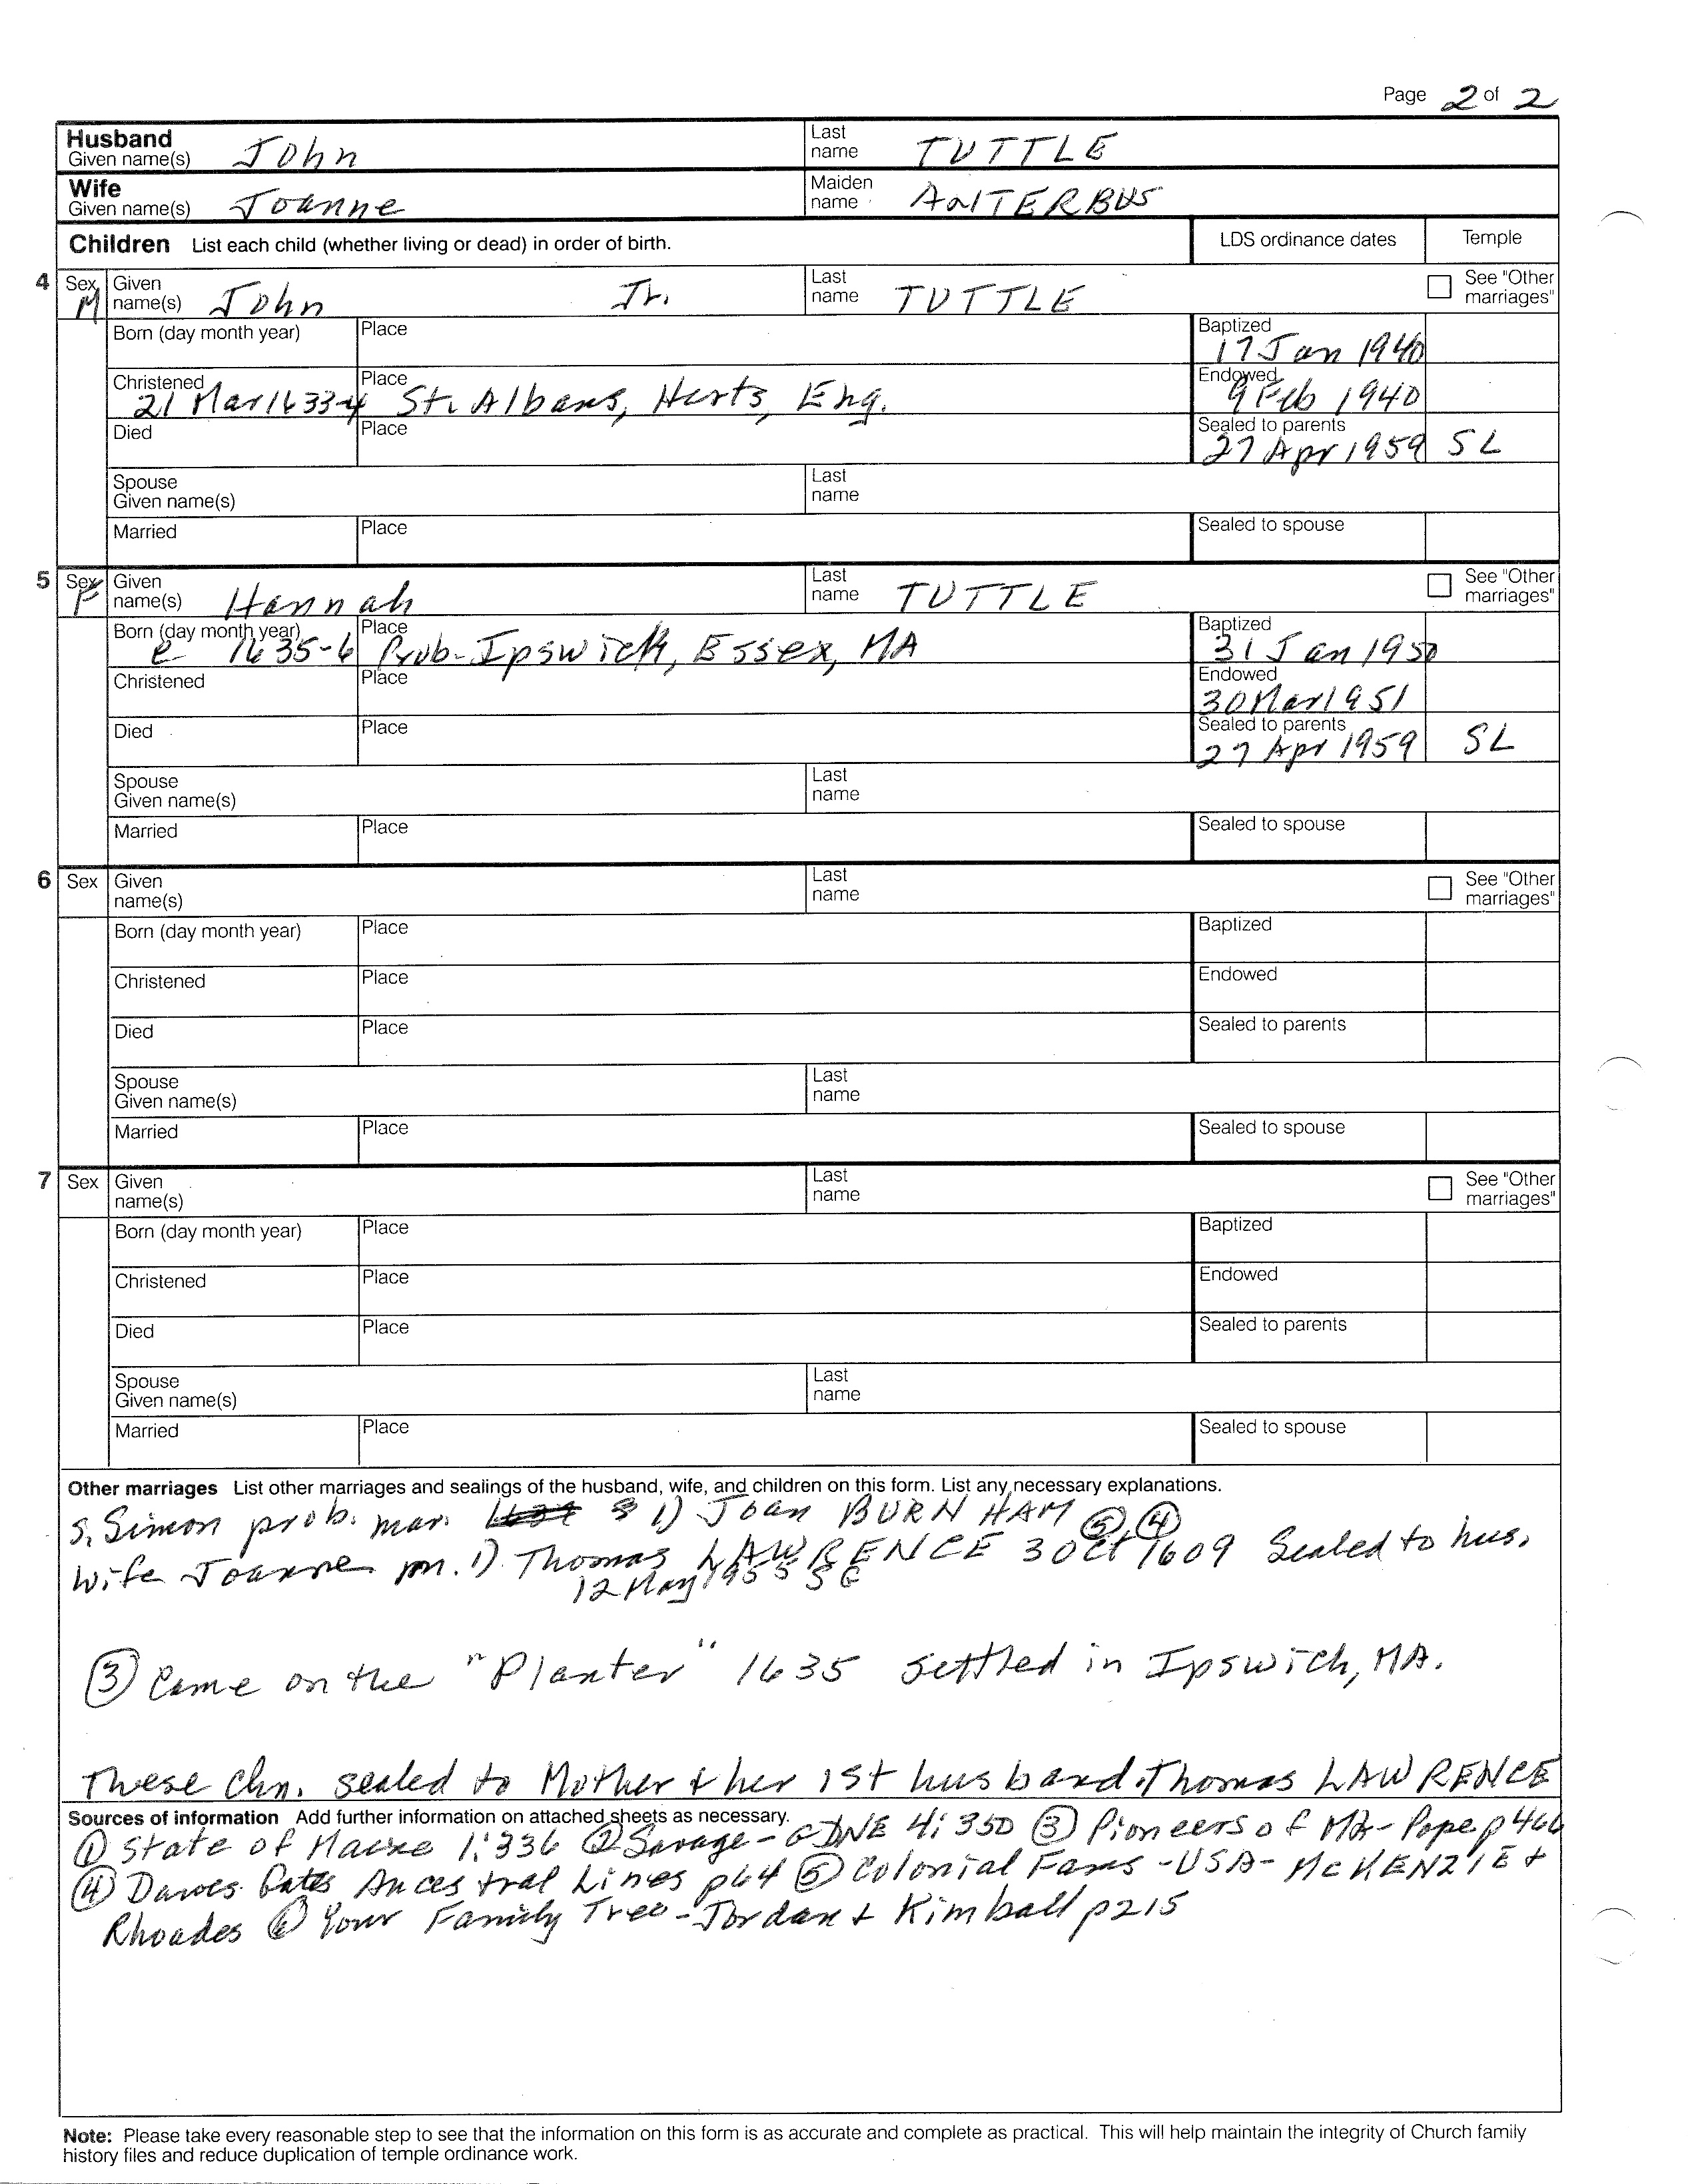 Page 2 of 2
Husband Given name(s) John Last name TUTTLE
Wife Given name(s) Joanne Maiden name ANTERBUS
Children List each child (whether living or dead) in order of birth. LDS ordinance dates Temple
4 Sex M Given name(s) John Jr. Last name TUTTLE See "Other marriages"
Born (day month year) Place Baptized 17 Jan 1940
Christened 21 Mar 1633-4 Place St. Albans, Herts, Eng. Endowed 9 Feb 1940
Died Place Sealed to parents 27 Apr 1959 SL
Spouse Given name(s) Last name
Married Place Sealed to spouse
5 Sex F Given name(s) Hannah Last name TUTTLE See "Other marriages"
Born (day month year) c 1635-6 Place Prob-Ipswich, Essex, MA Baptized 31 Jan 1950
Christened Place Endowed 30 Mar 1951
Died Place Sealed to parents 27 Apr 1959 SL
Spouse Given name(s) Last name
Married Place Sealed to spouse
6 Sex Given name(s) Last name See "Other marriages"
Born (day month year) Place Baptized
Christened Place Endowed
Died Place Sealed to parents
Spouse Given name(s) Last name
Married Place Sealed to spouse
7 Sex Given name(s) Last name See "Other marriages"
Born (day month year) Place Baptized
Christened Place Endowed
Died Place Sealed to parents
Spouse Given name(s) Last name
Married Place Sealed to spouse
Other marriages List other marriages and sealings of the husband, wife, and children on this form. List any necessary explanations.
S. Simon prob. mar. 1) Joan BURNHAM ⑤ ④
wife Joanne m. 1) Thomas LAWRENCE 3 Oct 1609 Sealed to hus.
12 May 1955 SG
③ Came on the "Planter" 1635 settled in Ipswich, MA.
These chn. sealed to Mother + her 1st husband. Thomas LAWRENCE
Sources of information Add further information on attached sheets as necessary.
① State of Maine 1:336 ② Savage - GDNE 4:350 ③ Pioneers of MA - Pope p466
④ Dawes Gates Ancestral Lines p64 ⑤ Colonial Fams - USA - McKENZIE +
Rhoades ⑥ Your Family Tree - Jordan + Kimball p215
Note: Please take every reasonable step to see that the information on this form is as accurate and complete as practical. This will help maintain the integrity of Church family
history files and reduce duplication of temple ordinance work.